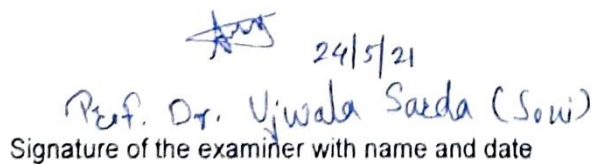 24/5/21
Prof. Dr. Ujwala Sarda (Soni)
Signature of the examiner with name and date